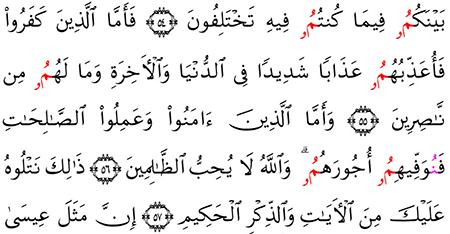 بَيْنَكُمُۥ فِيمَا كُنتُمُۥ فِيهِ تَخْتَلِفُونَ ﴿٥٤﴾ فَأَمَّا ٱلَّذِينَ كَفَرُوا۟
فَأُعَذِّبُهُمُۥ عَذَابًا شَدِيدًا فِى ٱلدُّنْيَا وَٱلْأَخِرَةِ وَمَا لَهُمُۥ مِن
نَّـٰصِرِينَ ﴿٥٥﴾ وَأَمَّا ٱلَّذِينَ ءَامَنُوا۟ وَعَمِلُوا۟ ٱلصَّـٰلِحَـٰتِ
فَنُوَفِّيهِمُۥ أُجُورَهُمُۥ ۗ وَٱللَّهُ لَا يُحِبُّ ٱلظَّـٰلِمِينَ ﴿٥٦﴾ ذَٰلِكَ نَتْلُوهُ
عَلَيْكَ مِنَ ٱلْأَيَـٰتِ وَٱلذِّكْرِ ٱلْحَكِيمِ ﴿٥٧﴾ إِنَّ مَثَلَ عِيسَىٰ